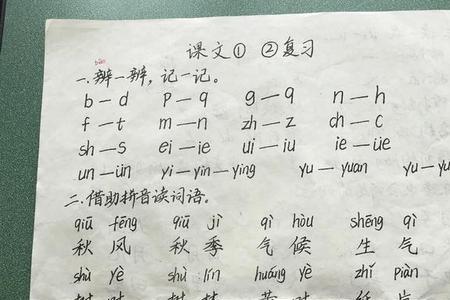 课文① ②复习
biàn
一.辨一辨，记一记。
b — d p — q g — q n — h
f — t m — n zh — z ch — c
sh — s ei — ie ui — iu ie — üe
un — ün yi — yin — ying yu — yuan yu — yu
二.借助拼音读词语。
qiū fēng qiū jì qì hòu shēng qì
秋风 秋季 气候 生气
shù yè shù lín huáng yè zhǐ piàn